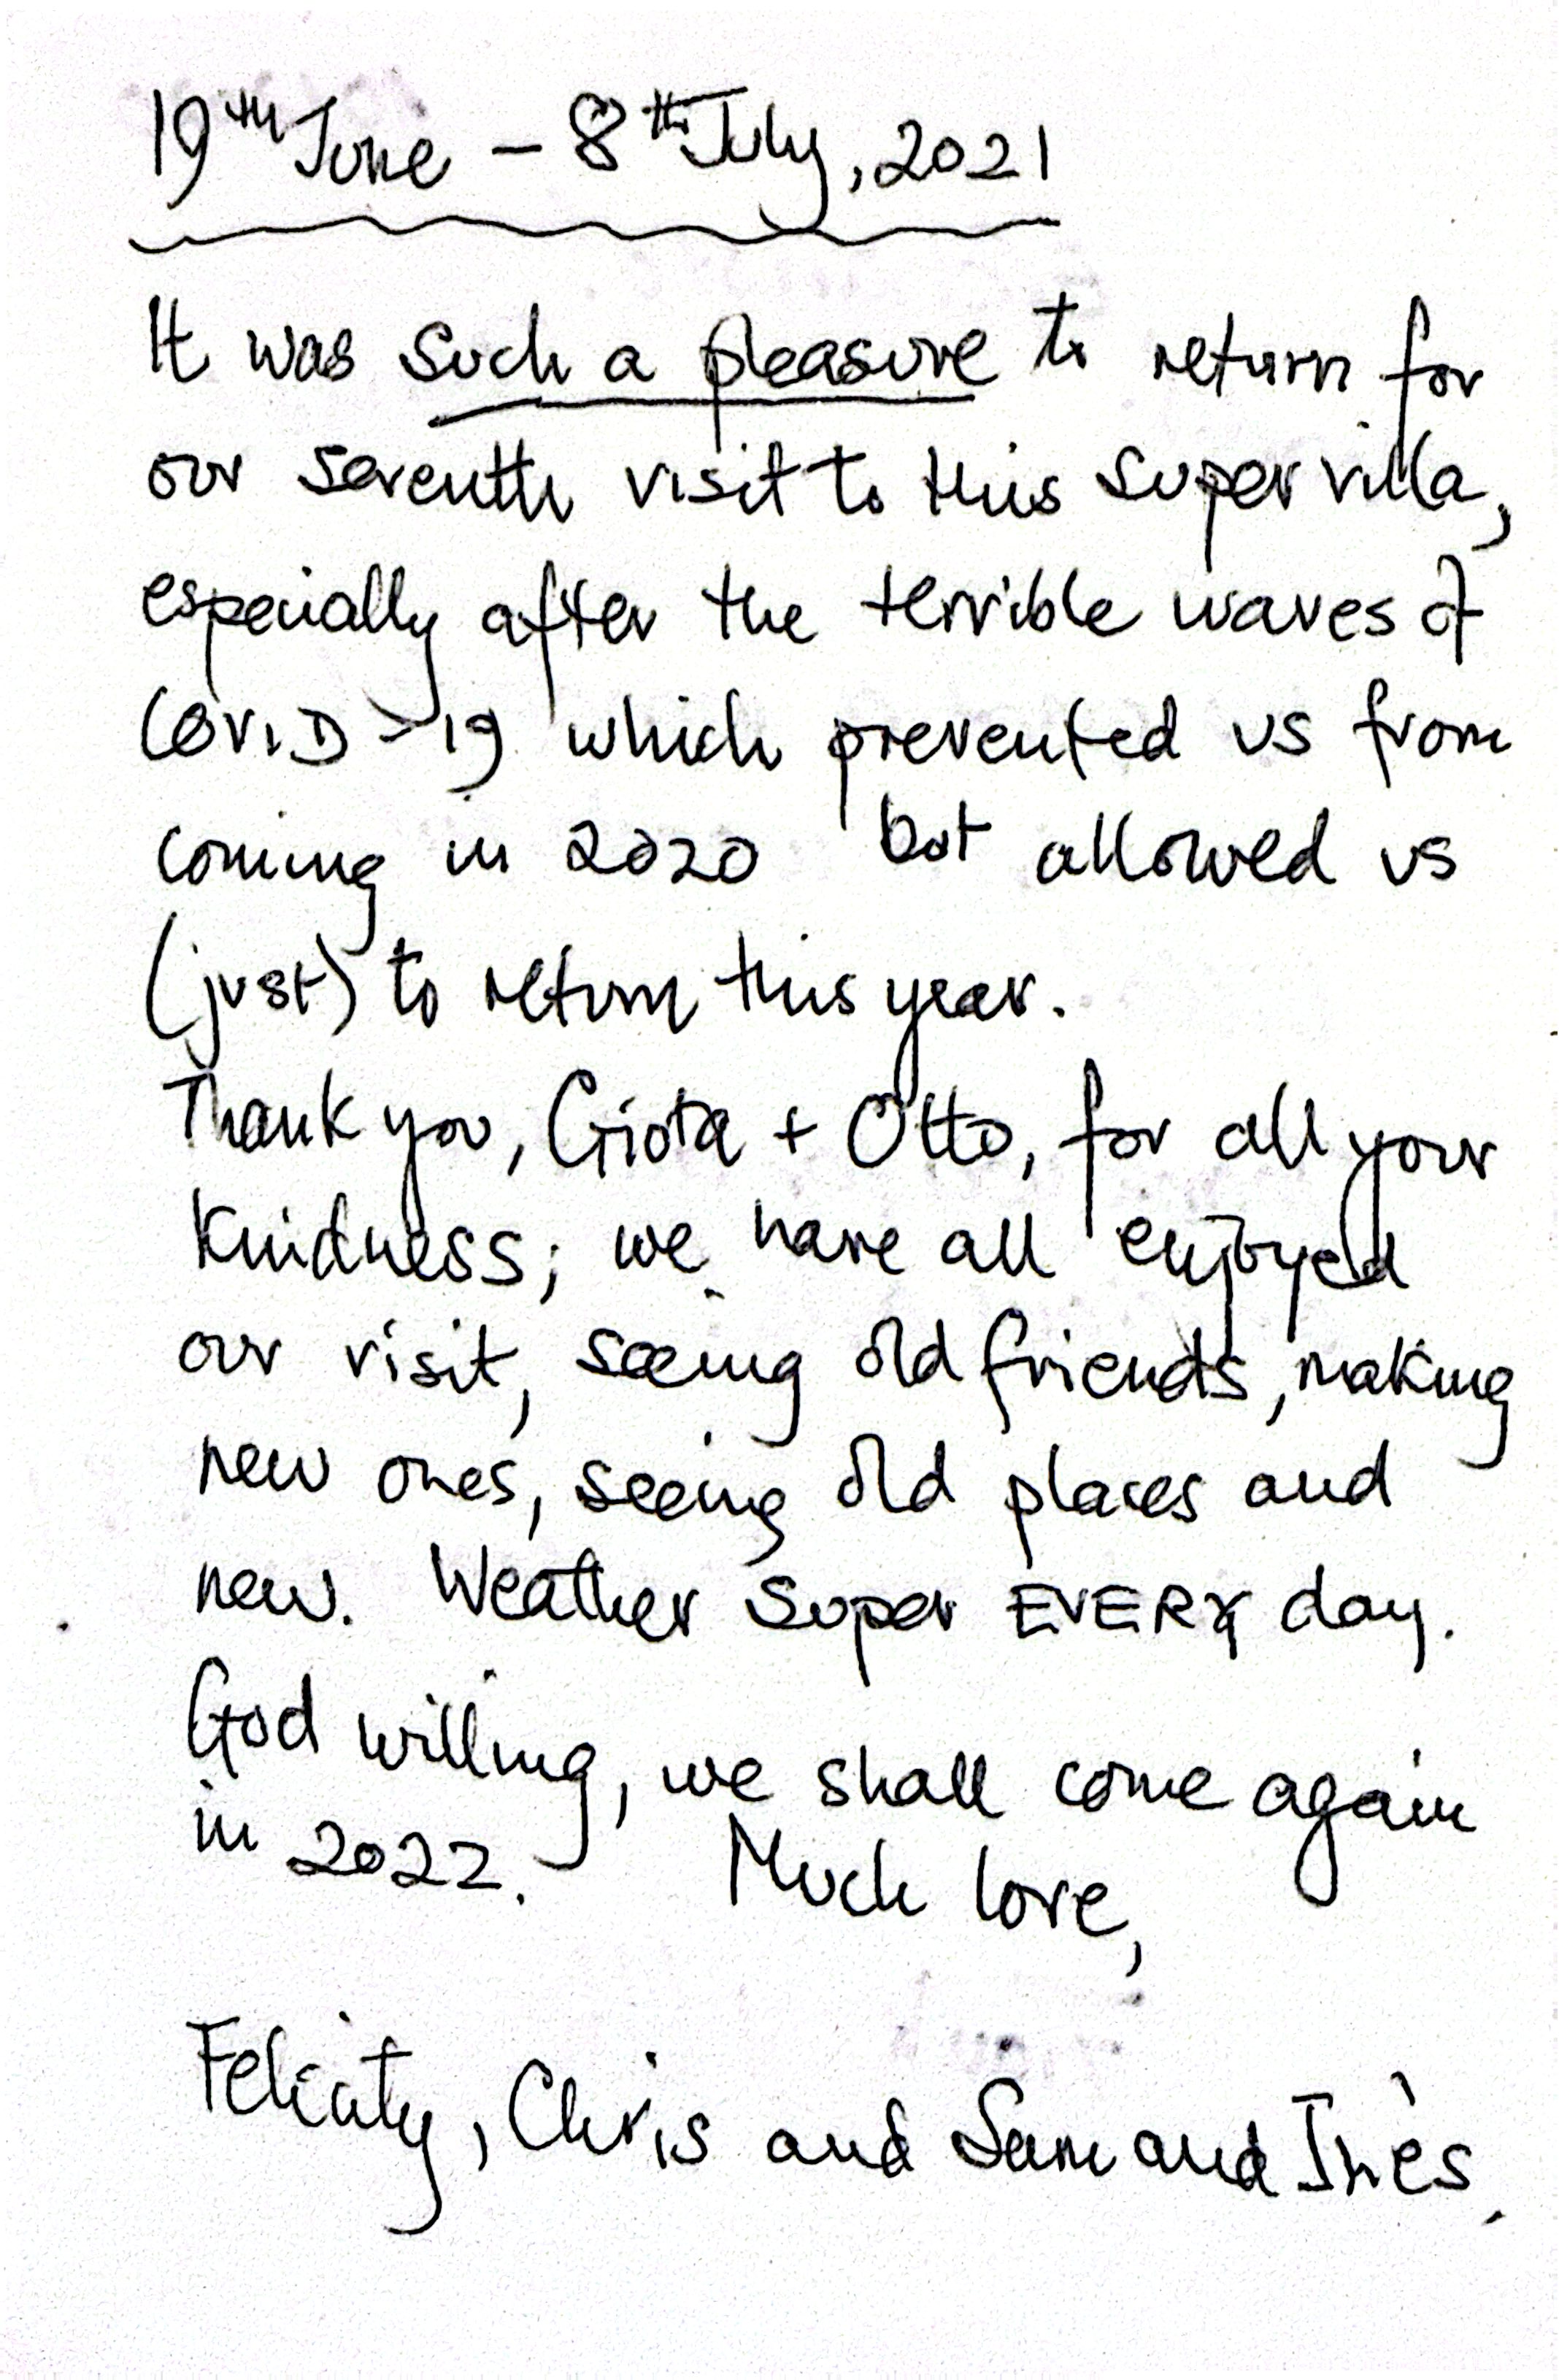 19th June - 8th July, 2021
It was such a pleasure to return for
our seventh visit to this super villa,
especially after the terrible waves of
COVID-19 which prevented us from
coming in 2020 but allowed us
(just) to return this year.
Thank you, Giota + Otto, for all your
kindness; we have all enjoyed
our visit, seeing old friends, making
new ones, seeing old places and
new. Weather super EVERY day.
God willing, we shall come again
in 2022. Much love,
Felicity, Chris and Sam and Inès.